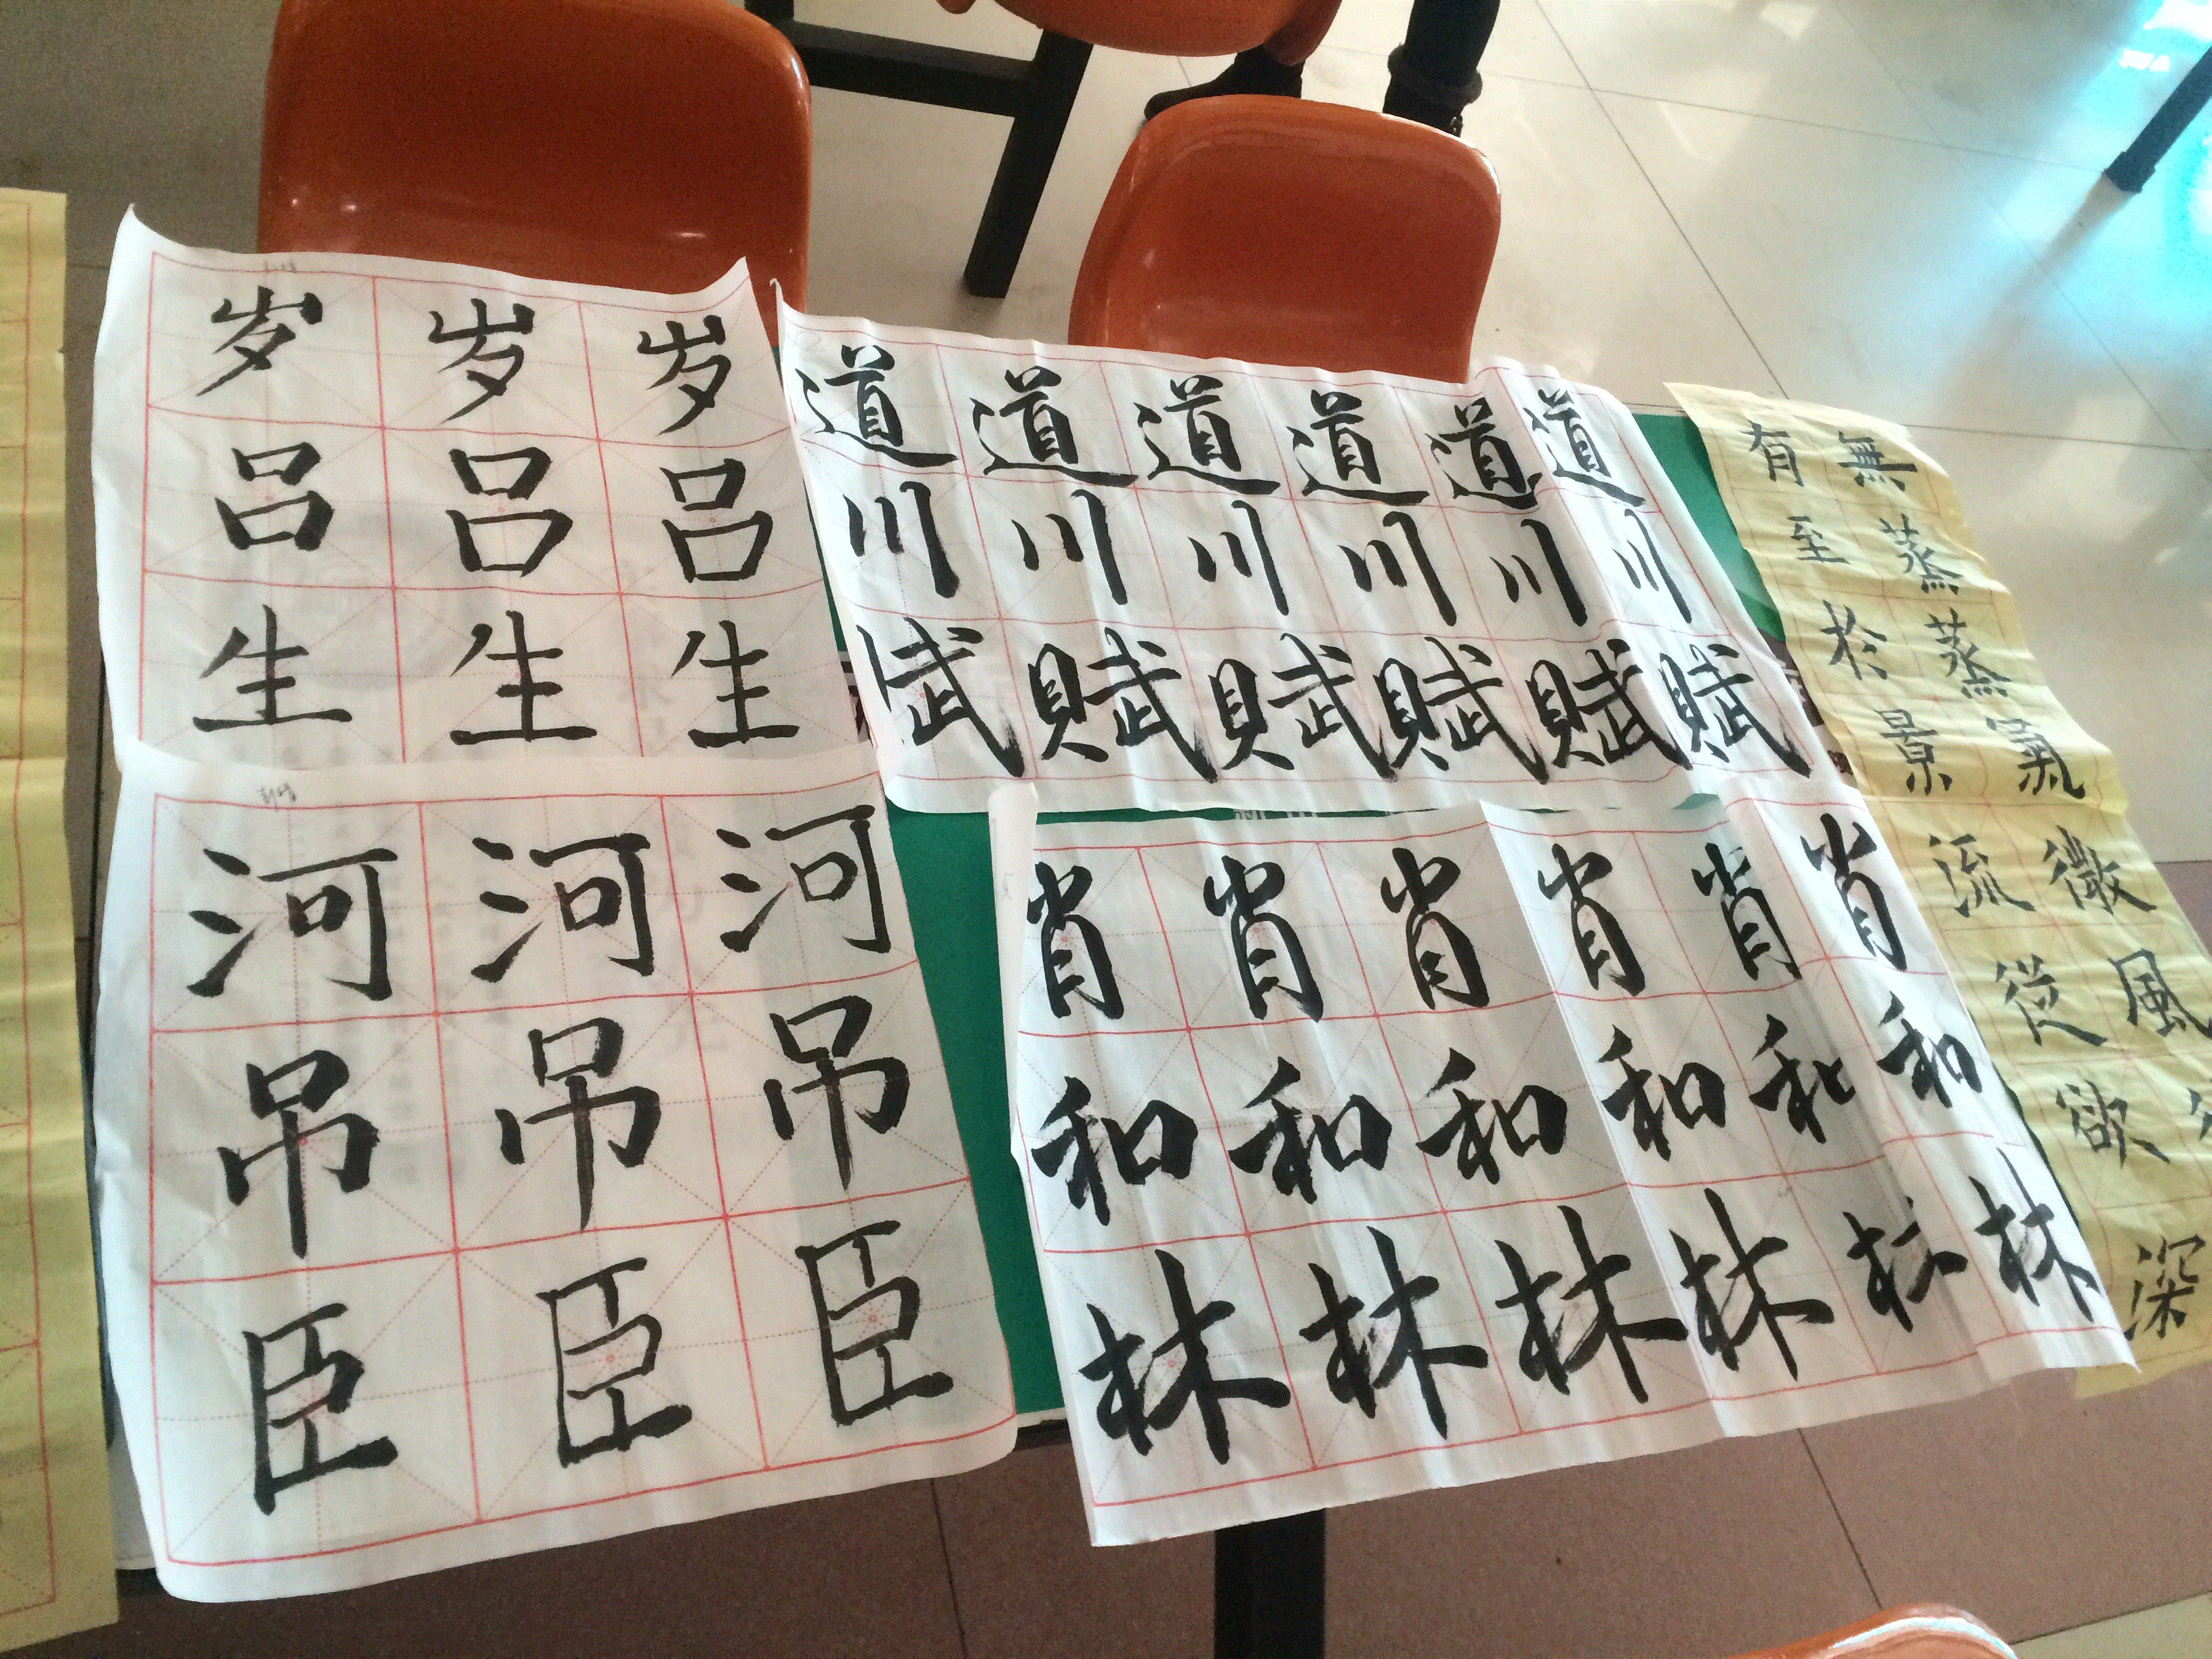 岁岁岁
吕吕吕
生生生
河河河
吊吊吊
臣臣臣
道道道道道道
川川川川川川
赋賦賦賦賦賦
肖肖肖肖肖肖
和和和和和和
林林林林林林
無蒸蒸氣微風
有至於景流從欲深